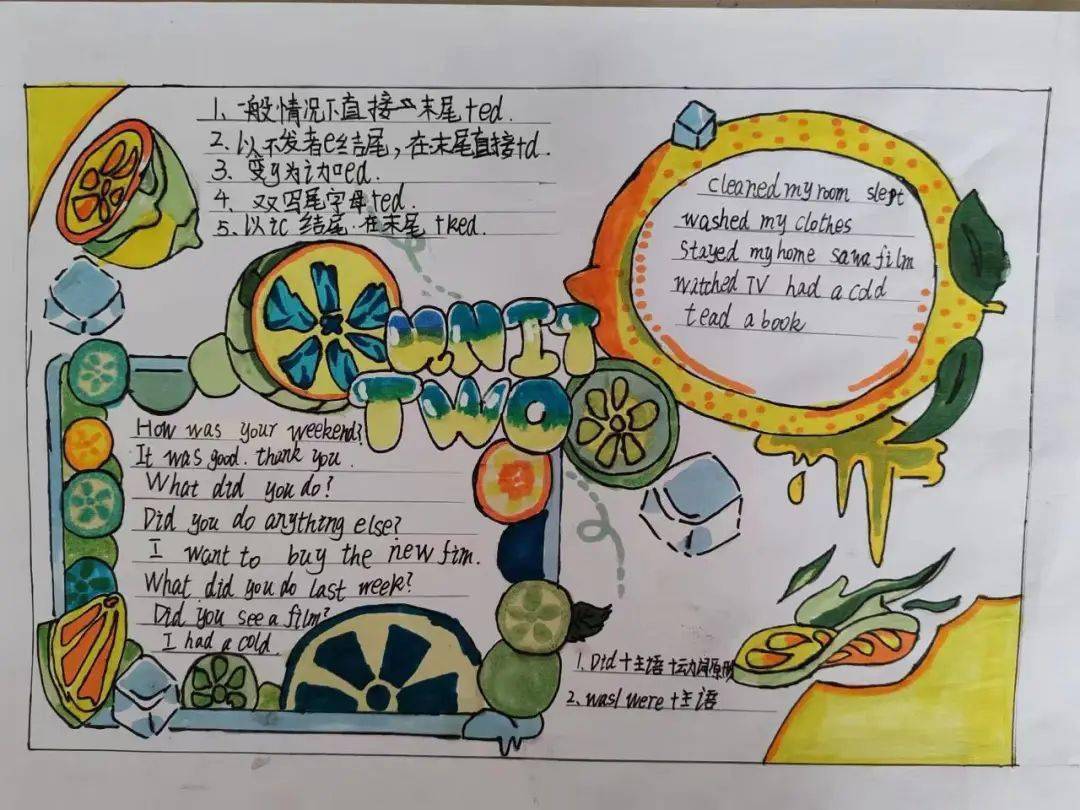 1、一般情况下直接在末尾+ed.
2、以不发者e结尾，在末尾直接+d.
3、变y为i加ed.
4、双四尾字母+ed.
5、以ic结尾.在末尾+ked.
cleaned my room slept
washed my clothes
stayed my home saw a film
watched TV had a cold
tead a book
UNIT
TWO
How was your weekend?
It was good. thank you.
What did you do?
Did you do anything else?
I want to buy the new fim.
What did you do last week?
Did you see a film?
I had a cold
1、Did+主语+动词原
2、was/were+主语